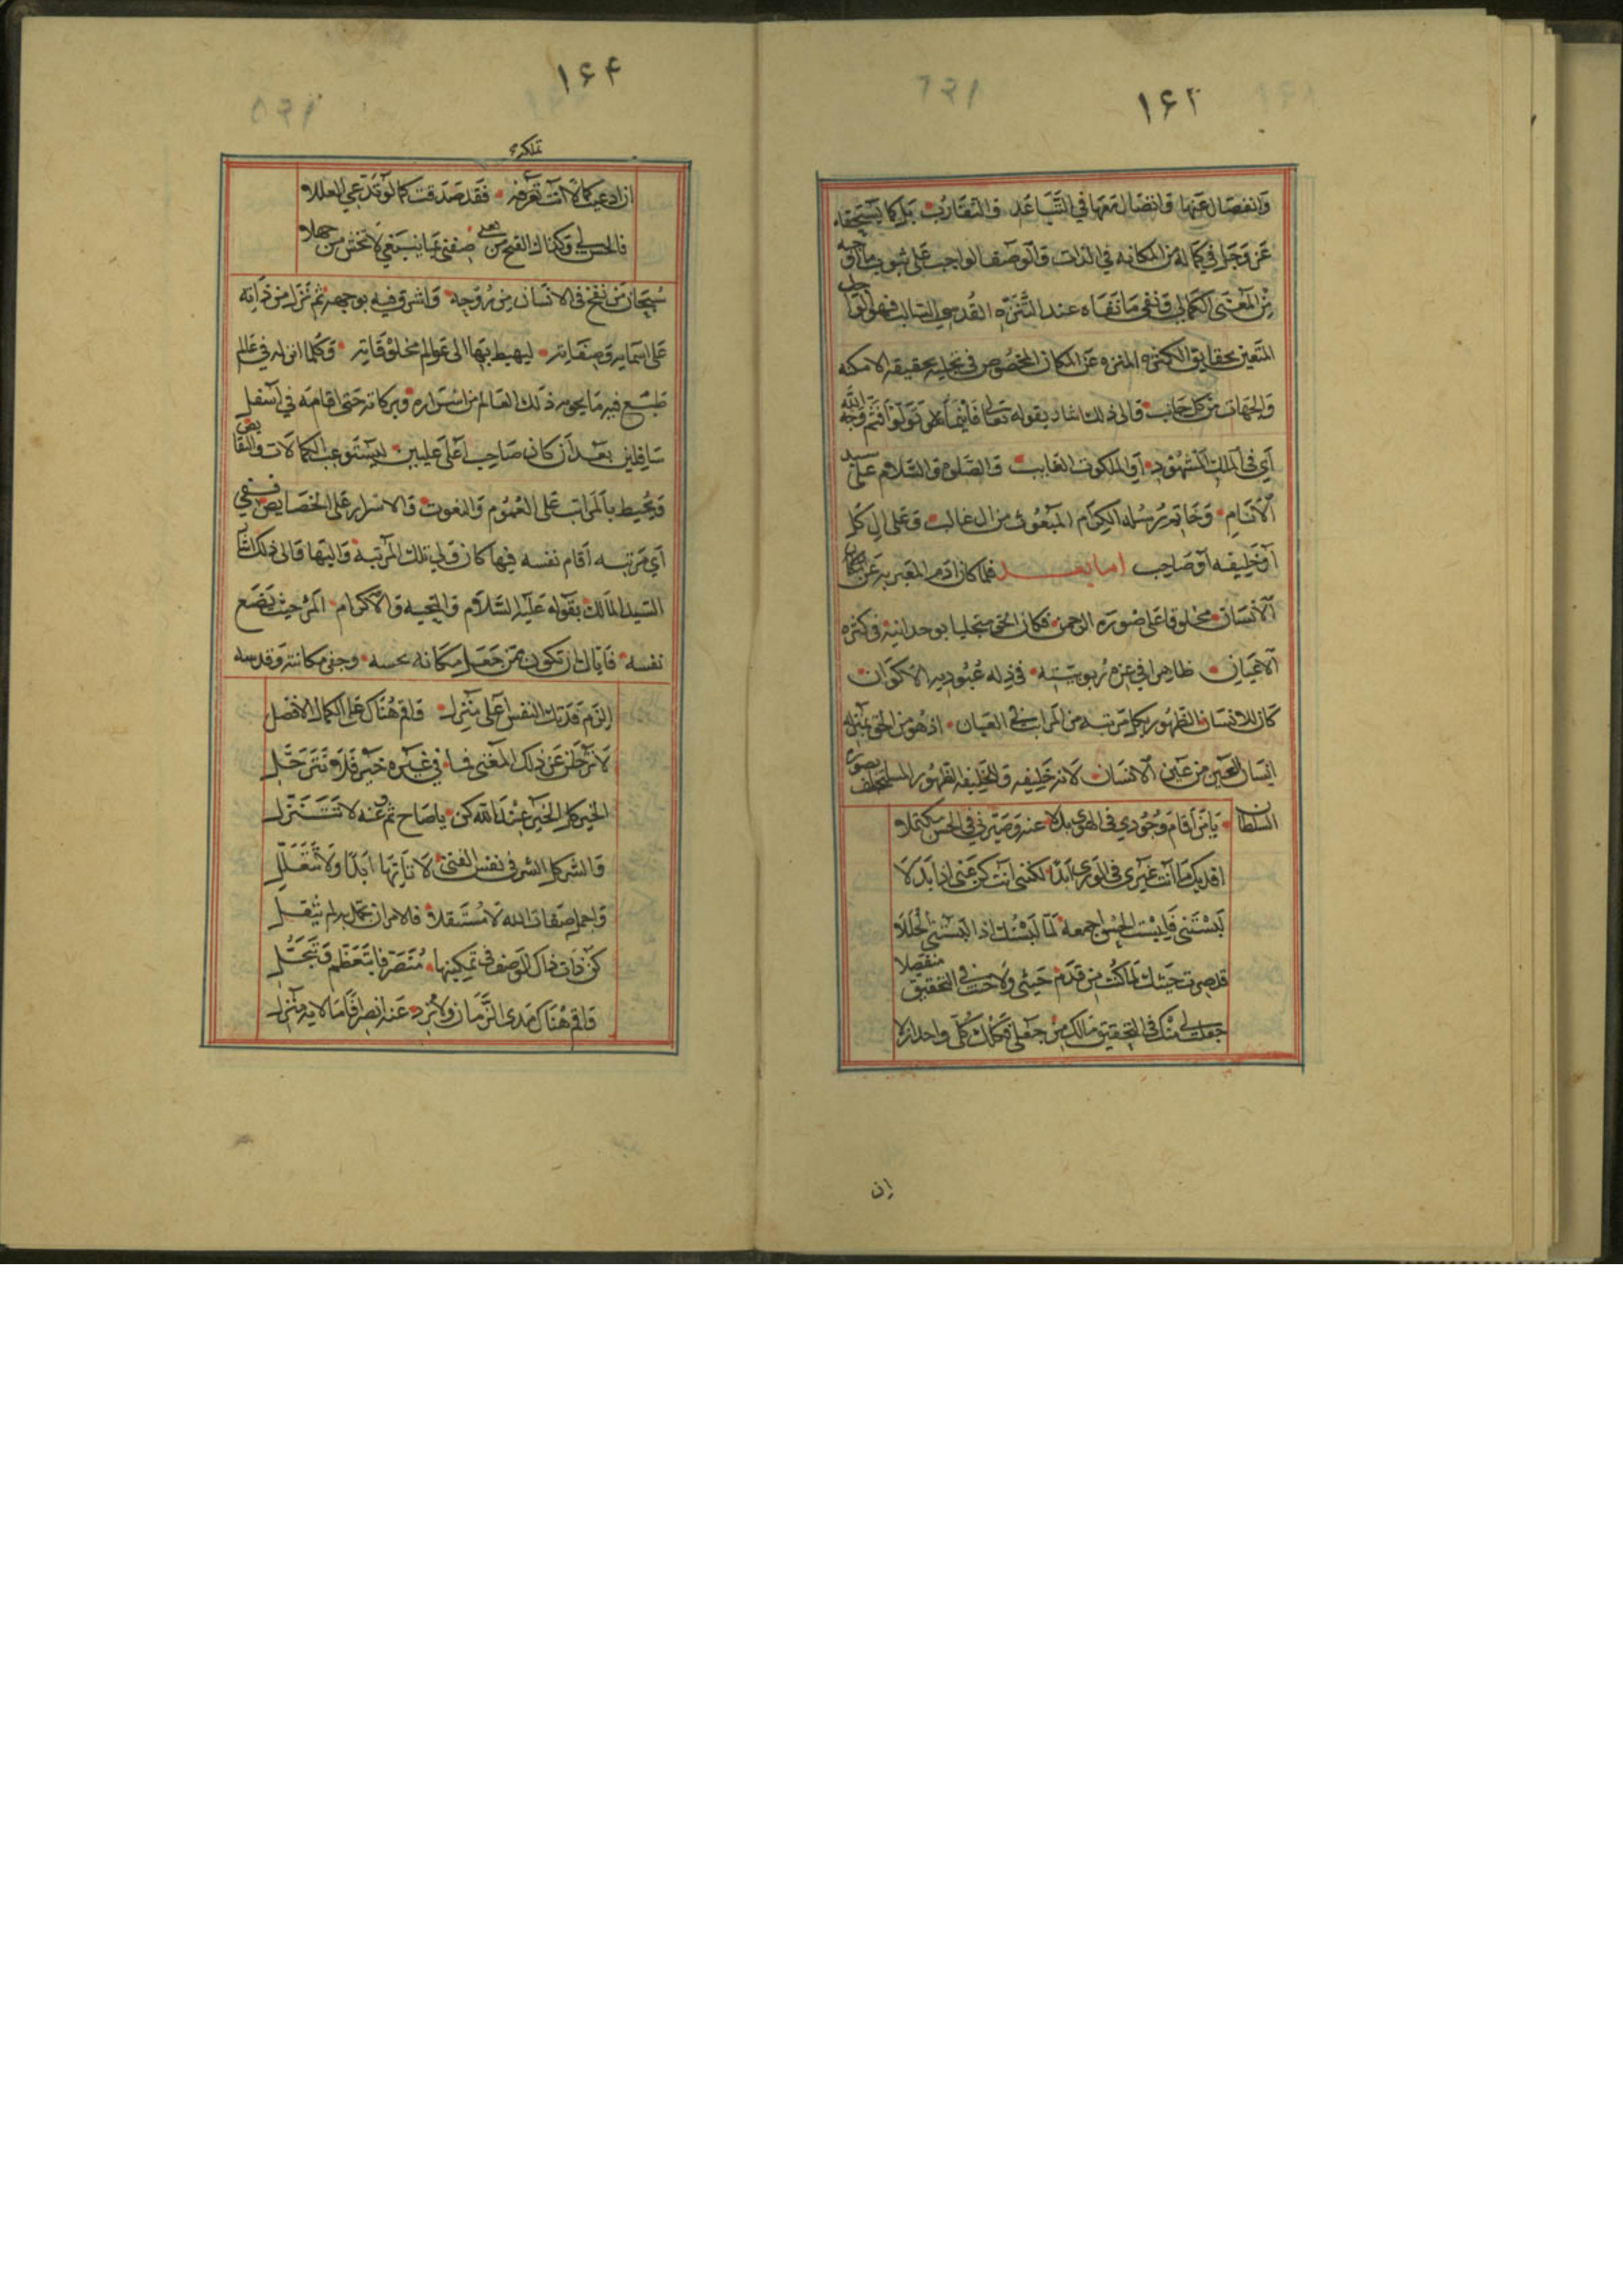 ١٦٢
وانفصال عنها واتصال معها في التباعد والتقارب بل كما يستحقه
عز وجل في كماله من المكانه في الذات والوصف الواجب على ثبوت ما اوجبه
من المعنى الكمالي ونفى ما نفاه عند التنزه القدسي السالب فهو الواحد
المتعين بحقايق الكثره المنزه عن المكان المخصوص في تجليه بحقيقه الامكنه
والجهات من كل جانب والى ذلك اشار بقوله تعالى فاينما تولوا فثم وجه الله
اي في الملك المشهود او الملكوت الغايب والصلوه والسلام على سيد
الانام وخاتم رسله الكرام المبعوث من ال غالب وعلى ال كل
او خليفه او صاحب اما بعد فلما كان ادم المعبر به عن
الانسان مخلوقا على صوره الرحمن فكان الحق متجليا بوحدانيته في كثره
الاعيان ظاهرا في عزه ربوبيته في ذله عبوديه الاكوان
كان للانسان الظهور بكل مرتبه من المراتب في العيان اذ هو من الحق بمنزله
انسان العين من عين الانسان لانه خليفه والخليفه الظهور المستخلف بصوره
السلطان يا من اقام وجودي في الهوى بدلا عنه وصيرني في الحسن مكتملا
افديك ما انت غيري في الورى ابدا لكنني انت كن عني اذا بدلا
لبستني فلبست الحسن اجمعه لما لبستك اذ البستني الحللا
قد صرت حيثك لما كنت من قدم حيثي ولا حيث في التحقيق منفصلا
جعلت لي منك في التحقيق مالك من جعلي وكلك كلي واحد ازلا
ان
١٦٤
تملكه
ان ادعيت كمالا انت تعرفه فقد صدقت كما لو تدعي العللا
فالحسن لي وكذاك القبح من صفتي عما ينبغي لا تخش من جهلا
سبحان من نفخ في الانسان من روحه واشرق فيه بوجهه ثم نزله من ذاته
على اسمايه وصفاته ليهبط بها الى عوالم مخلوقاته وكلما انزله في عالم
طبع فيه ما يحويه ذلك العالم من اسراره وبركاته حتى اقامه في اسفل
سافلين بعد ان كان صاحب اعلى عليين ليستوعب الكمالات والنقايص
ويحيط بالمراتب على العموم والنعوت والاسرار على الخصايص ففي
اي مرتبه اقام نفسه فيها كان ولي تلك المرتبه واليها والى ذلك اشار
السيد المالك بقوله عليه السلام والتحيه والاكرام المرء حيث يضع
نفسه فاياك ان تكون ممن جعل مكانه بحبسه وجفى مكانته وقدسه
الزم فديتك النفس اعلى منزل واقم هناك على الكمال الافضل
لا ترحلن عن ذلك المغنى فما في غيره خير فلا تترحل
الخير كل الخير عند الله كن يا صاح ثم وعنه لا تتنزل
والشر كل الشر في نفس الفتى لا تاتها ابدا ولا تتعلل
واحمل صفات الله لا مستقلا فالامر ان تحمل به لم يثقل
كن ذات ذاك الوصف في تمكينها متصرفا بتعظم وتبجل
واقم هناك مدى الزمان ولا ترد عنه انصرافا ما لا به منزل